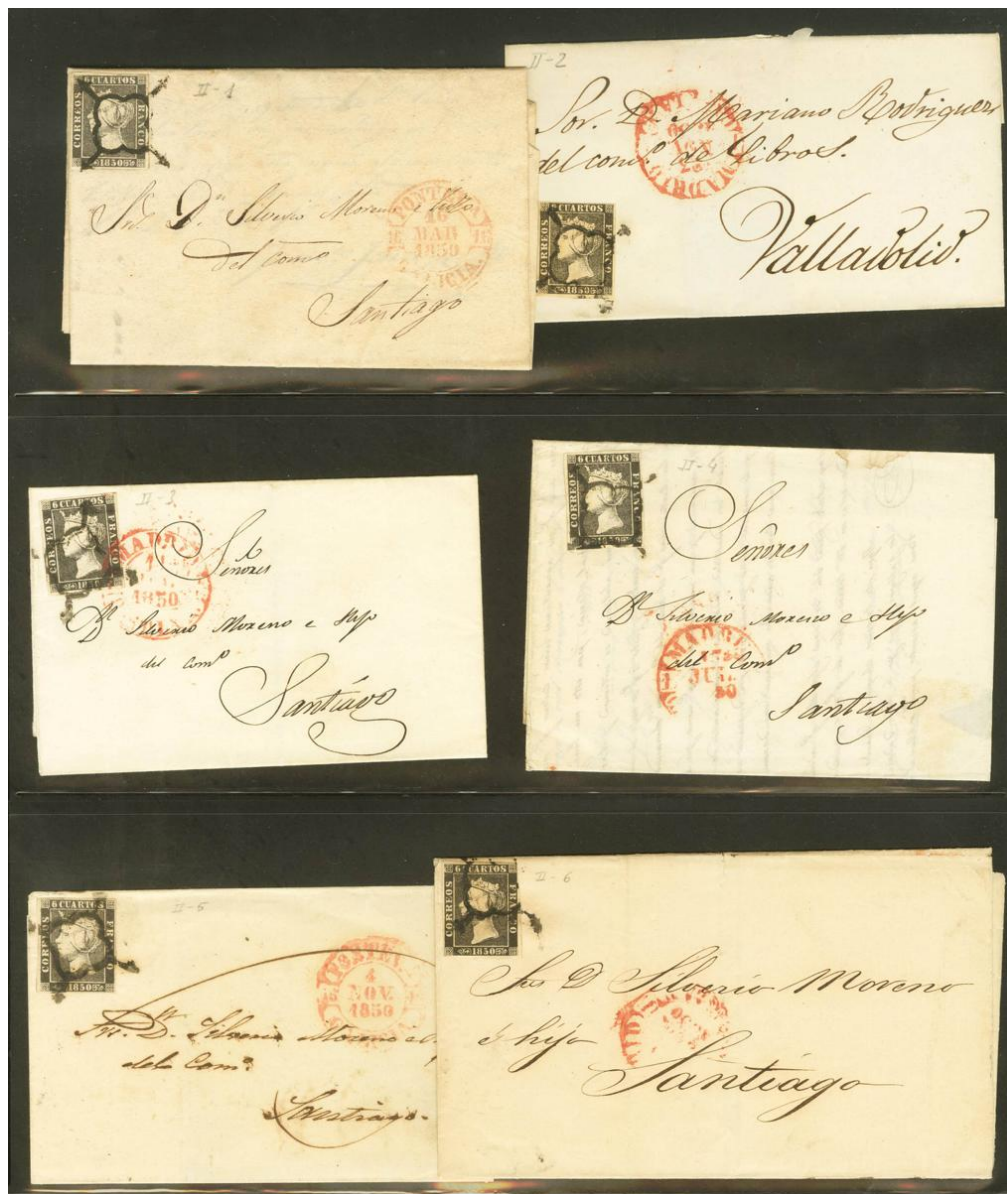 6 CUARTOS
CORREOS
FRANCO
1850
II-1
Sres. Dn. Silverio Moreno e hijo
del Como
Santiago
PONTEV
16
MAR
1850
GALICIA.
II-2
Sor. D. Mariano Rodriguez
del como. de Libros.
Valladolid.
MADRID
CORREOS
FRANCO
1850
6 CUARTOS
CORREOS
II-3
MADRID
1850
Señores
Dn Silverio Moreno e Hijo
del Como
Santiago
6 CUARTOS
CORREOS
FRANCO
1850
II-4
Señores
Dn Silverio Moreno e Hijo
del Como
Santiago
MADRI
6 CUARTOS
CORREOS
FRANCO
1850
II-5
4
NOV.
1850
Sres. Dn. Silverio Moreno e
del Como.
Santiago.
6 CUARTOS
CORREOS
FRANCO
1850
II-6
Sres D Silverio Moreno
é hijo
Santiago